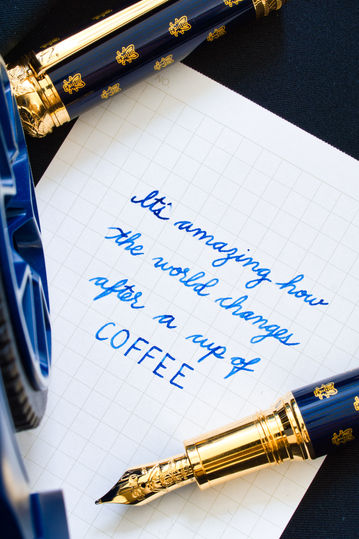 It's amazing how
the world changes
after a cup of
COFFEE